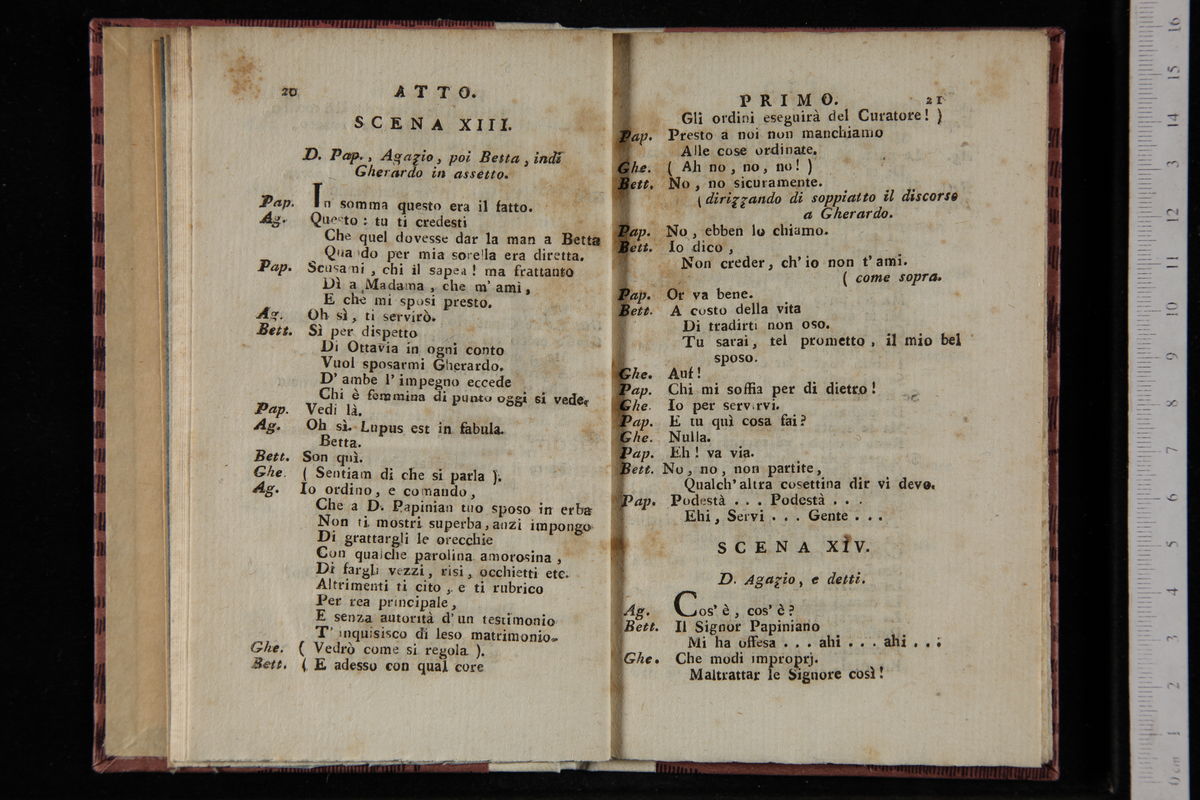 20
ATTO.
SCENA XIII.
D. Pap., Agazio, poi Betta, indi
Gherardo in assetto.
Pap. In somma questo era il fatto.
Ag. Questo : tu ti credesti
Che quel dovesse dar la man a Betta
Quando per mia sorella era diretta.
Pap. Scusami, chi il sapea! ma frattanto
Dì a Madama, che m'ami,
E che mi sposi presto.
Ag. Oh sì, ti servirò.
Bett. Sì per dispetto
Di Ottavia in ogni conto
Vuol sposarmi Gherardo.
D'ambe l'impegno eccede
Chi è femmina di punto oggi si vede.
Pap. Vedi là.
Ag. Oh sì. Lupus est in fabula.
Betta.
Bett. Son quì.
Ghe. ( Sentiam di che si parla ).
Ag. Io ordino, e comando,
Che a D. Papinian tuo sposo in erba
Non ti mostri superba, anzi impongo
Di grattargli le orecchie
Con qualche parolina amorosina,
Di fargli vezzi, risi, occhietti etc.
Altrimenti ti cito, e ti rubrico
Per rea principale,
E senza autorità d'un testimonio
T'inquisisco di leso matrimonio.
Ghe. ( Vedrò come si regola ).
Bett. ( E adesso con qual core
PRIMO. 21
Gli ordini eseguirà del Curatore! )
Pap. Presto a noi non manchiamo
Alle cose ordinate.
Ghe. ( Ah no, no, no! )
Bett. No, no sicuramente.
( dirizzando di soppiatto il discorso
a Gherardo.
Pap. No, ebben lo chiamo.
Bett. Io dico,
Non creder, ch'io non t'ami.
( come sopra.
Pap. Or va bene.
Bett. A costo della vita
Di tradirti non oso.
Tu sarai, tel prometto, il mio bel
sposo.
Ghe. Auf!
Pap. Chi mi soffia per di dietro!
Ghe. Io per servirvi.
Pap. E tu quì cosa fai?
Ghe. Nulla.
Pap. Eh! va via.
Bett. No, no, non partite,
Qualch'altra cosettina dir vi devo.
Pap. Podestà . . . Podestà . . .
Ehi, Servi . . . Gente . . .
SCENA XIV.
D. Agazio, e detti.
Ag. Cos'è, cos'è?
Bett. Il Signor Papiniano
Mi ha offesa . . . ahi . . . ahi . . .
Ghe. Che modi improprj.
Maltrattar le Signore così!
0 cm 1 2 3 4 5 6 7 8 9 10 11 12 13 14 15 16